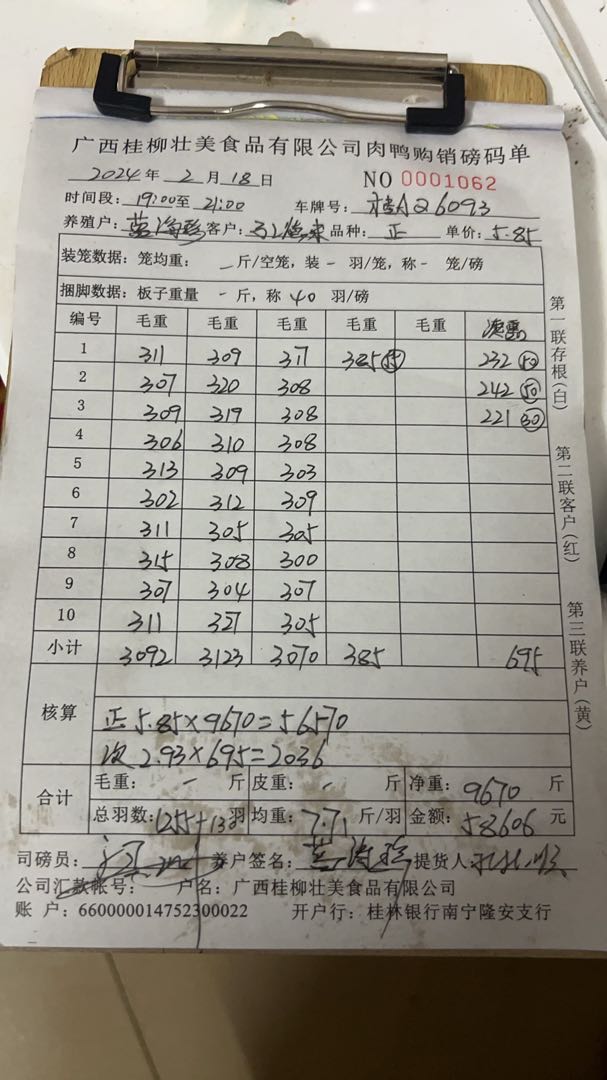 广西桂柳壮美食品有限公司肉鸭购销磅码单
2024 年 2 月 18 日 NO 0001062
时间段: 19:00至 21:00 车牌号: 桂A Q6093
养殖户: 客户: 品种: 正 单价: 5.85
装笼数据: 笼均重: - 斤/空笼, 装 - 羽/笼, 称 - 笼/磅
捆脚数据: 板子重量 - 斤, 称 40 羽/磅
编号 毛重 毛重 毛重 毛重 毛重
1 311 309 317 385 55 232 50
2 307 320 308 242 50
3 309 319 308 221 30
4 306 310 308
5 313 309 303
6 302 312 309
7 311 305 305
8 315 308 300
9 307 304 307
10 311 327 305
小计 3092 3123 3070 385 695
核算
正 5.85×9670=56570
次 2.93×695=2036
合计 毛重: - 斤 皮重: - 斤 净重: 9670 斤
总羽数: 1255+130 羽 均重: 7.71 斤/羽 金额: 58606 元
司磅员: 养户签名: 提货人
公司汇款帐号: 户名: 广西桂柳壮美食品有限公司
账 户: 660000014752300022 开户行: 桂林银行南宁隆安支行
第一联存根(白)
第二联客户(红)
第三联养户(黄)